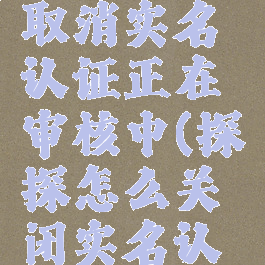 取消实名
认证正在
审核中(探
探怎么关
闭实名认